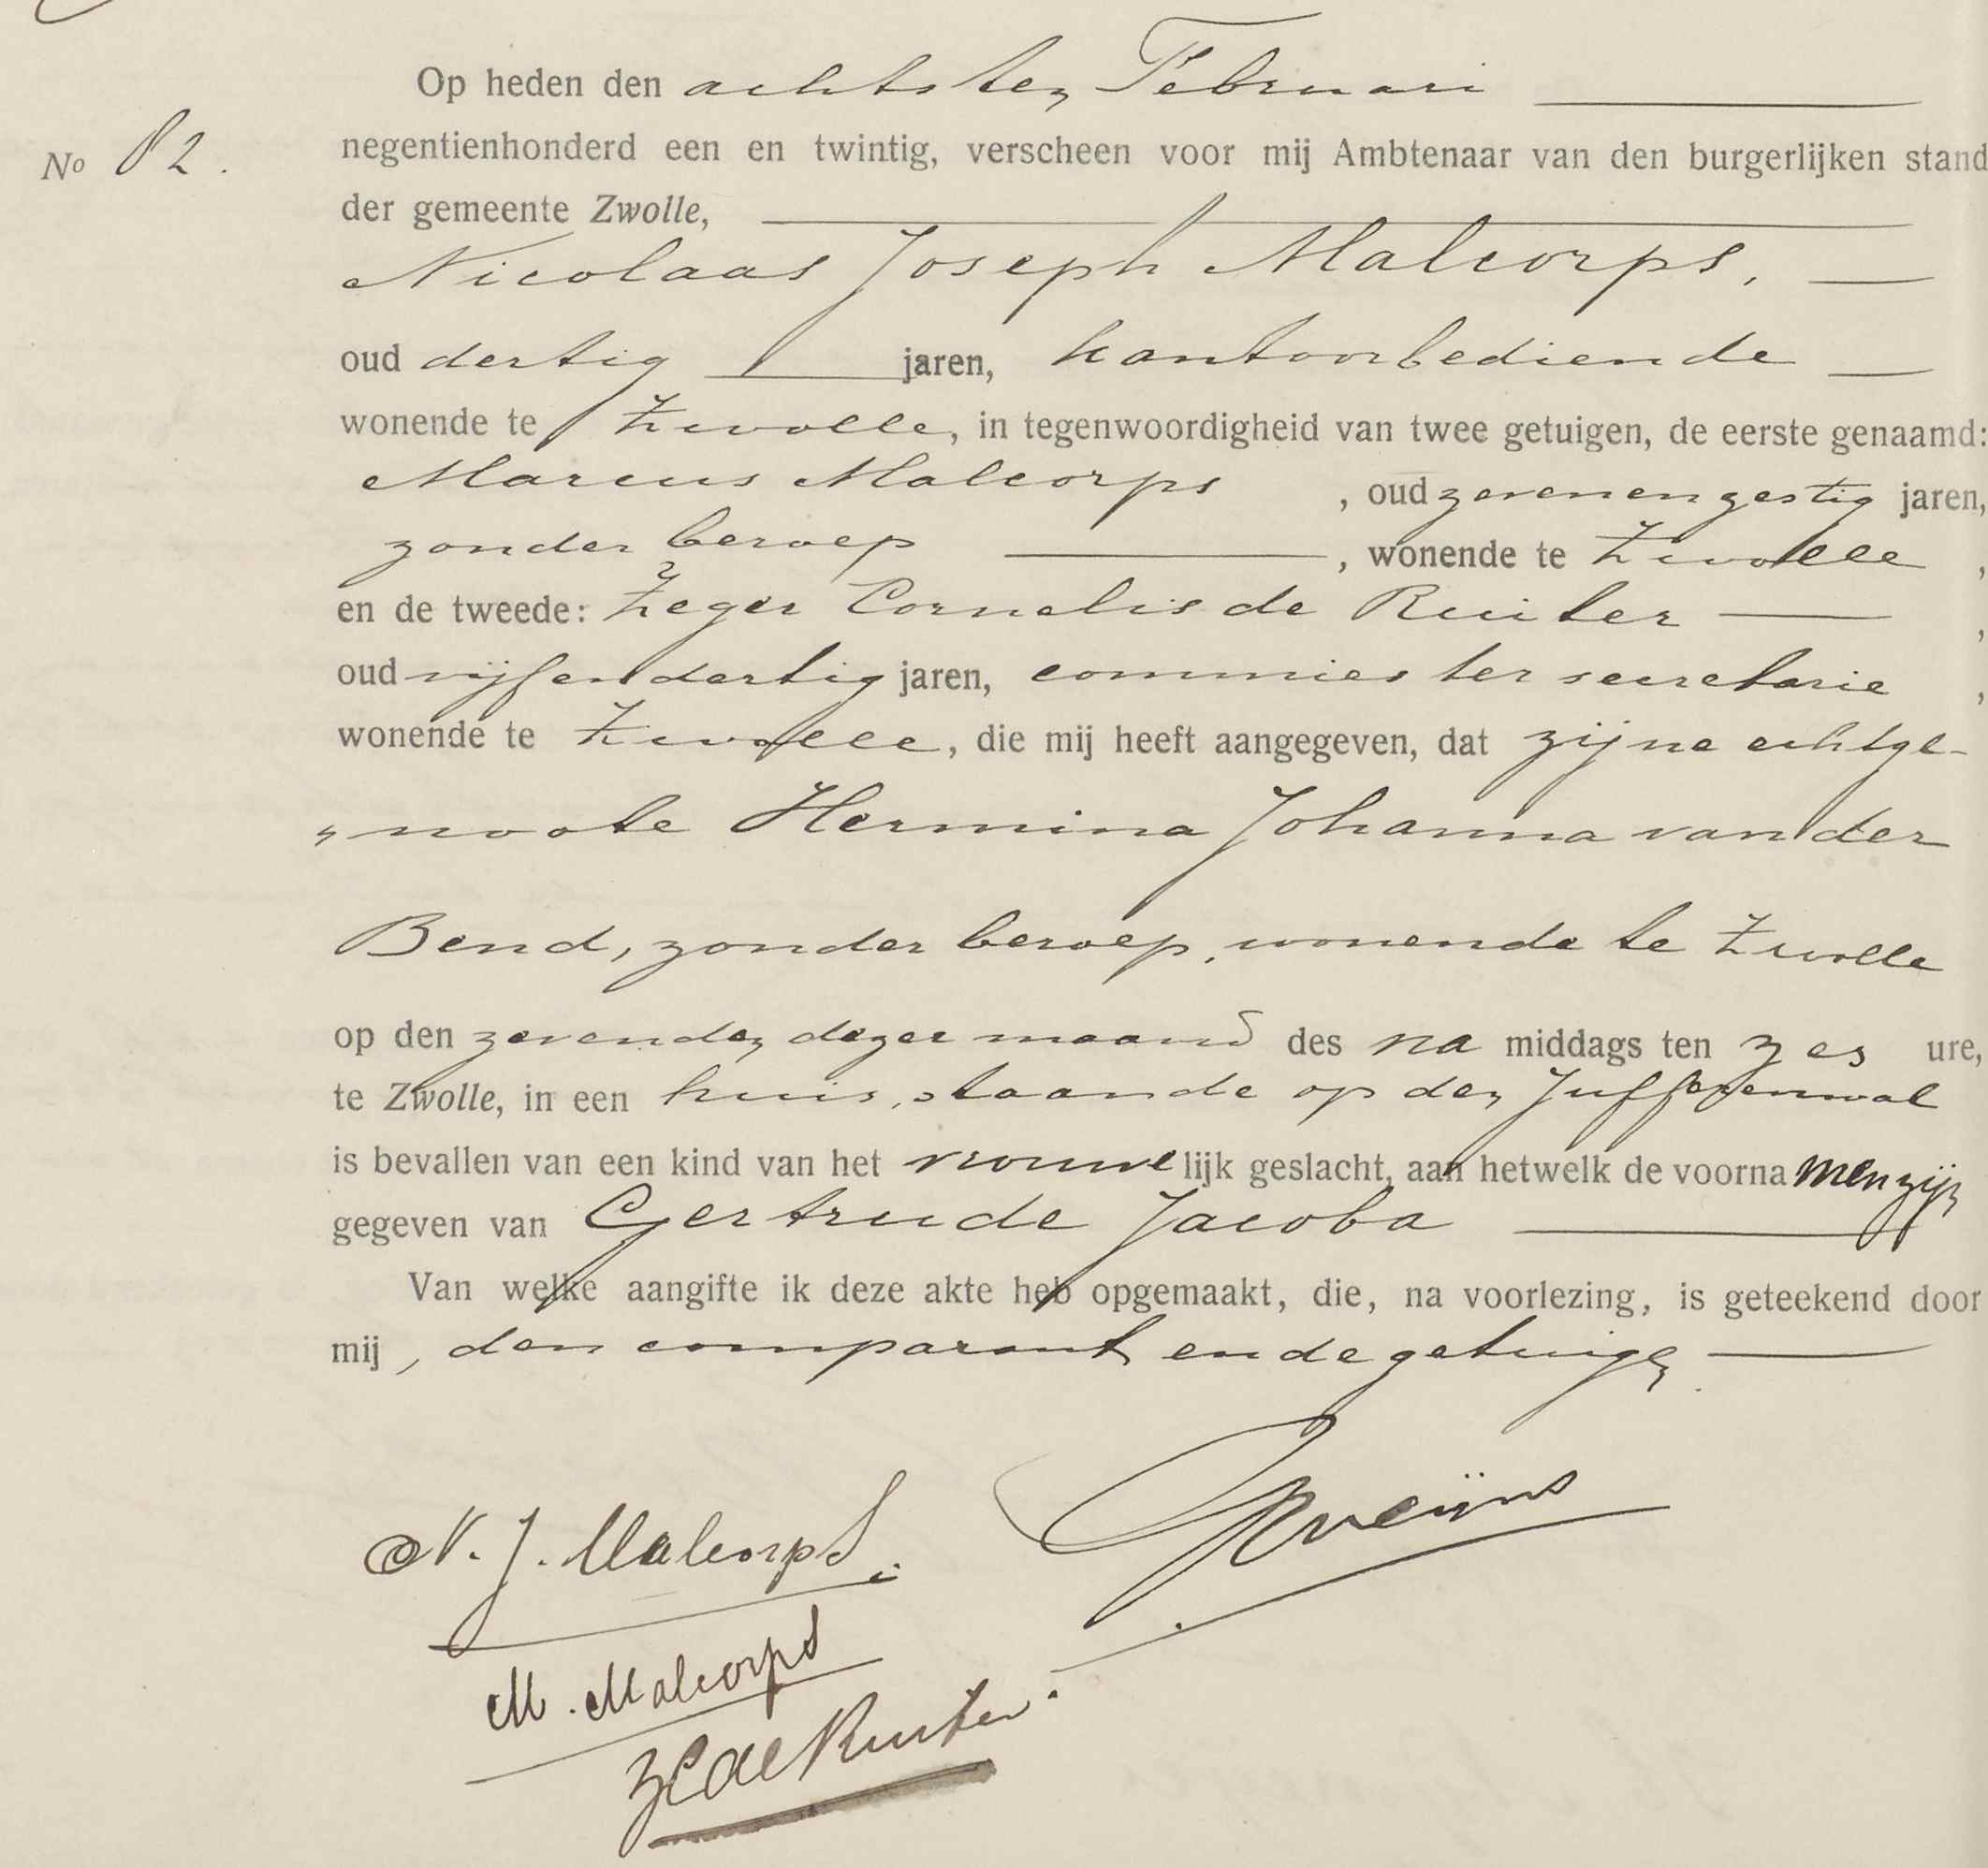 Op heden den achtsten Februari
No 82.
negentienhonderd een en twintig, verscheen voor mij Ambtenaar van den burgerlijken stand
der gemeente Zwolle,
Nicolaas Joseph Malcorps,
oud dertig jaren, kantoorbediende
wonende te Zwolle, in tegenwoordigheid van twee getuigen, de eerste genaamd:
Marcus Malcorps, oud zevenenzestig jaren,
zonder beroep, wonende te Zwolle,
en de tweede: Zeger Cornelis de Ruiter,
oud vijfendertig jaren, commies ter secretarie,
wonende te Zwolle, die mij heeft aangegeven, dat zijne echtge-
"noote Hermina Johanna van der
Bend, zonder beroep, wonende te Zwolle
op den zevenden dezer maand des na middags ten zes ure,
te Zwolle, in een huis, staande op den Jufferenwal
is bevallen van een kind van het vrouwelijk geslacht, aan hetwelk de voornamen zijn
gegeven van Gertrude Jacoba
Van welke aangifte ik deze akte heb opgemaakt, die, na voorlezing, is geteekend door
mij, den comparant en de getuigen.
N. J. Malcorps.
M. Malcorps
ZCdeRuiter.